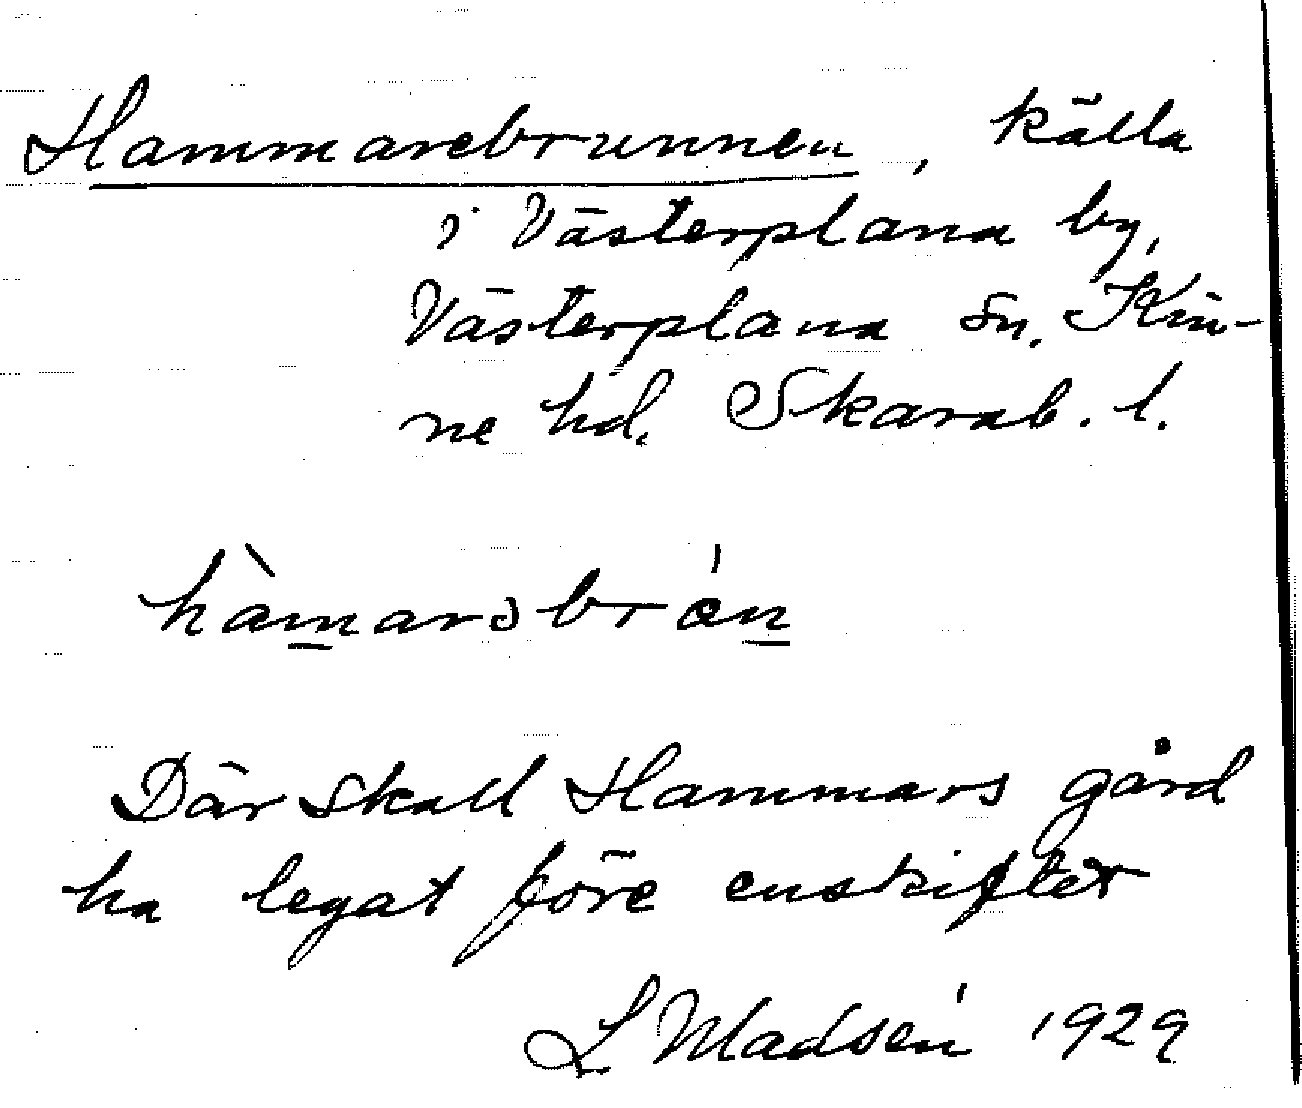 Hammarebrunnen, källa
i Västerplana by,
Västerplana sn. Kin-
ne hd. Skarab. l.
hàmarɔbrǿn
Där skall Hammars gård
ha legat före enskiftet
L Madsén 1929